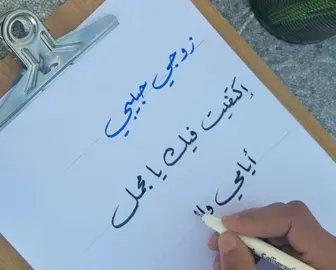 زوجي حبيبي
إكتفيت فيك يا مجمل
أيامي وا